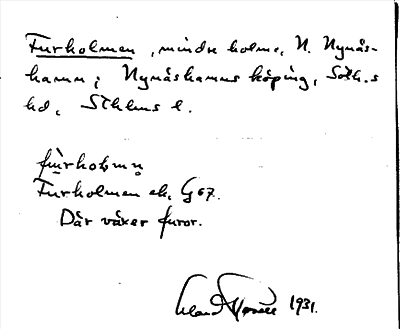 Furholmen, mindre holme, N. Nynäs-
hamn; Nynäshamns köping, Soth.s
hd, Sthlms l.
fùrholmn̥
Furholmen ek. G 67.
Där växer furor.
1931.